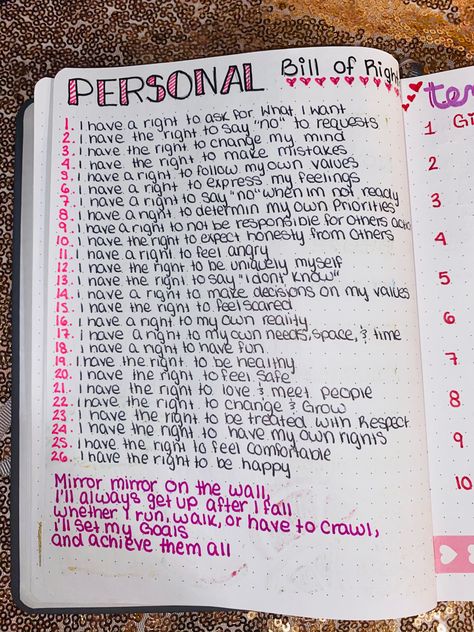 PERSONAL Bill of Rights
1. I have a right to ask for what I want
2. I have the right to say "no" to requests
3. I have the right to change my mind
4. I have the right to make mistakes
5. I have a right to follow my own values
6. I have a right to express my feelings
7. I have a right to say "no" when im not ready
8. I have a right to determin my own Priorities
9. I have a right to not be responsible for others
10. I have the right to expect honesty from others
11. I have a right to feel angry
12. I have the right to be uniquely myself
13. I have the right to say "i dont know"
14. I have a right to make decisions on my values
15. I have the right to feel scared
16. I have a right to my own reality
17. I have a right to my own needs, space, & time
18. I have a right to have fun
19. I have the right to be healthy
20. I have the right to feel safe
21. I have the right to love & meet people
22. I have the right to change & Grow
23. I have the right to be treated with Respect
24. I have the right to have my own rights
25. I have the right to feel comfortable
26. I have the right to be happy
Mirror mirror on the wall,
I'll always get up after I fall
whether I run, walk, or have to crawl,
I'll set my Goals
and achieve them all
1
2
3
4
5
6
7
8
9
10